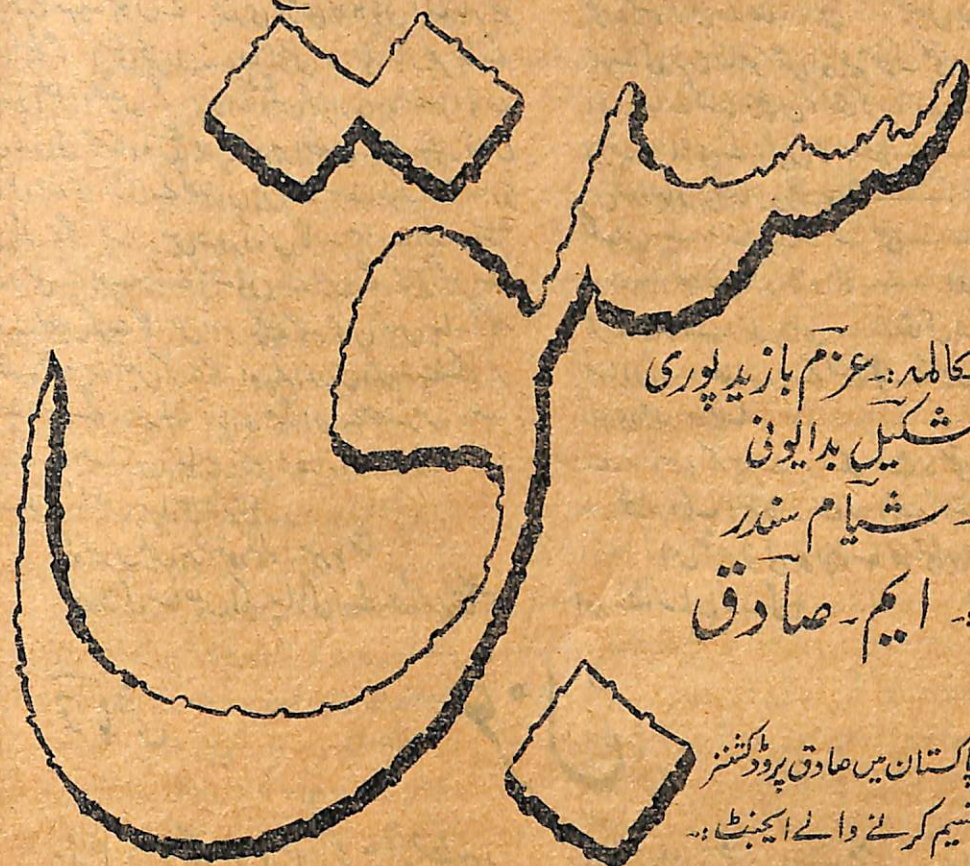 سبق
مکالمہ:۔ عزم بازید پوری
شکیل بدایونی
شیام سندر
ایم۔ صادق
پاکستان میں صادق پروڈکشنز
تقسیم کرنے والے ایجنٹ:۔